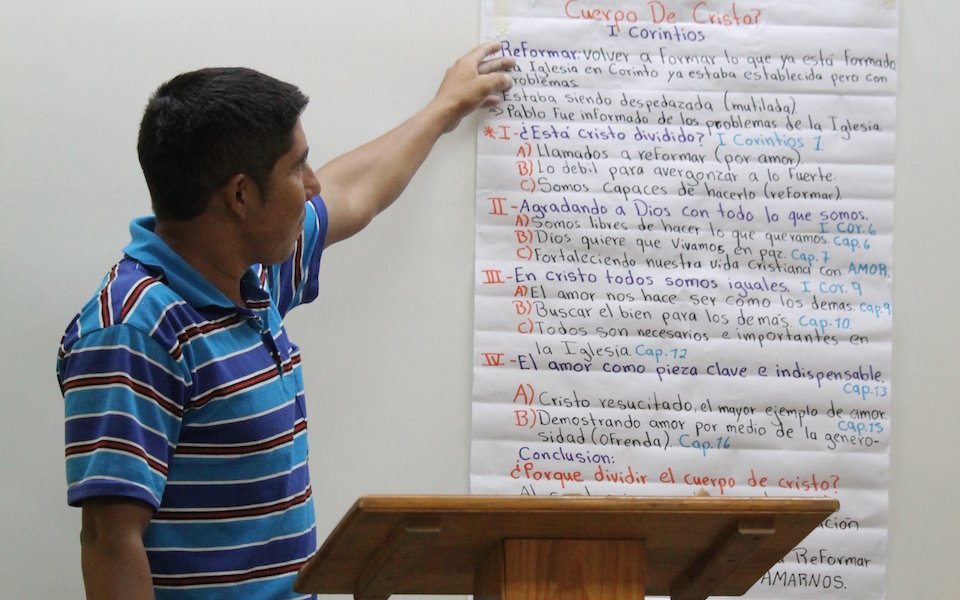 Cuerpo De Cristo?
I Corintios
* Reformar: volver a Formar lo que ya está Formado
La Iglesia en Corinto ya estaba establecida pero con
problemas.
Estaba siendo despedazada (mutilada)
=> Pablo Fue informado de los problemas de la Iglesia
* I - ¿Está cristo dividido? I Corintios 1.
A) Llamados a reformar (por amor)
B) Lo debil para avergonzar a lo Fuerte.
C) Somos capaces de hacerlo (reformar)
II - Agradando a Dios con todo lo que somos.
I Cor. 6
A) Somos libres de hacer lo que queramos. Cap. 6
B) Dios quiere que vivamos en paz. Cap. 7
C) Fortaleciendo nuestra vida cristiana con AMOR.
III - En cristo todos somos iguales. I Cor. 9
A) El amor nos hace ser como los demas. Cap. 9
B) Buscar el bien para los demás. Cap. 10.
C) Todos son necesarios e importantes en
la Iglesia. Cap. 12
IV - El amor como pieza clave e indispensable.
Cap. 13
A) Cristo resucitado, el mayor ejemplo de amor.
Cap. 15
B) Demostrando amor por medio de la genero-
sidad (Ofrenda) Cap. 16
Conclusion:
¿Porque dividir el cuerpo de cristo?
Reformar
AMARNOS.